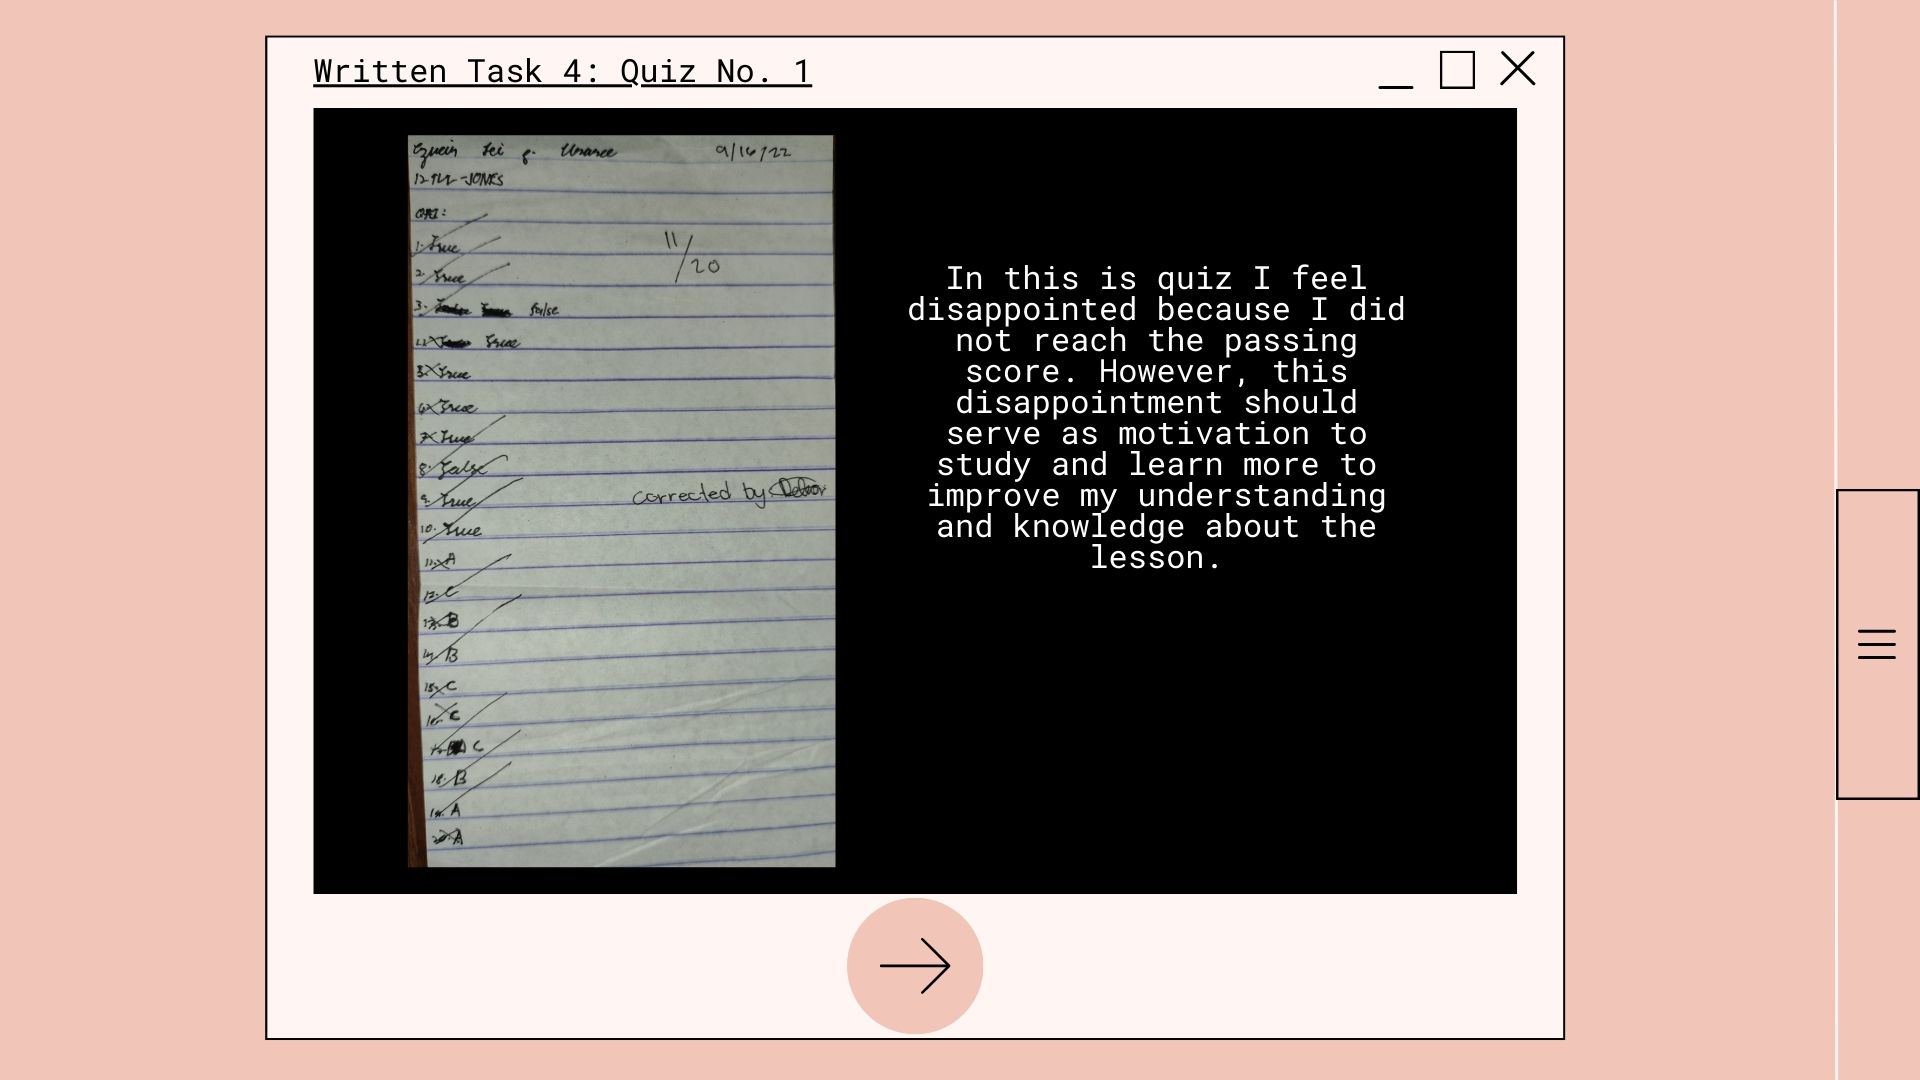 Written Task 4: Quiz No. 1
9/16/22
11/20
1. True
2. True
3. False
True
5. True
6. True
7. True
8. False
9. True
10. True
11. A
12. C
13. B
14. B
15. C
16. C
17. C
18. B
19. A
20. A
corrected by
In this is quiz I feel
disappointed because I did
not reach the passing
score. However, this
disappointment should
serve as motivation to
study and learn more to
improve my understanding
and knowledge about the
lesson.